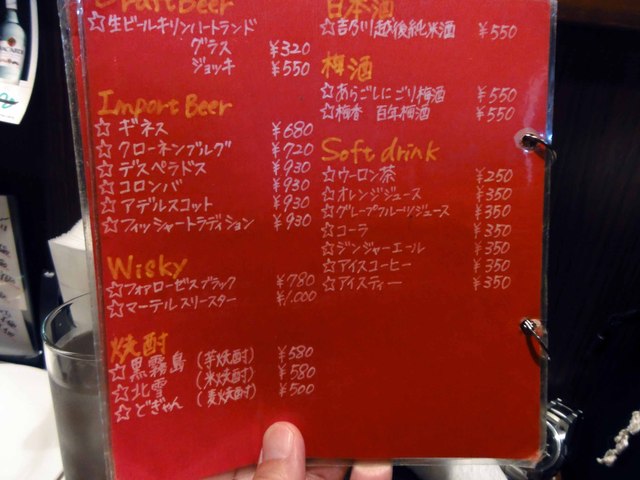 Draft Beer
☆生ビールキリンハートランド
グラス ¥320
ジョッキ ¥550
Import Beer
☆ギネス ¥680
☆クローネンブルグ ¥720
☆デスペラドス ¥930
☆コロンバ ¥930
☆アデルスコット ¥930
☆フィッシャートラディション ¥930
Wisky
☆フォアローゼスブラック ¥780
☆マーテルスリースター ¥1.000
焼酎
☆黒霧島 (芋焼酎) ¥580
☆北雪 (米焼酎) ¥580
☆どぎゃん (麦焼酎) ¥500
日本酒
☆吉乃川越後純米酒 ¥550
梅酒
☆あらごしにごり梅酒 ¥550
☆梅香 百年梅酒 ¥550
Soft drink
☆ウーロン茶 ¥250
☆オレンジジュース ¥350
☆グレープフルーツジュース ¥350
☆コーラ ¥350
☆ジンジャーエール ¥350
☆アイスコーヒー ¥350
☆アイスティー ¥350